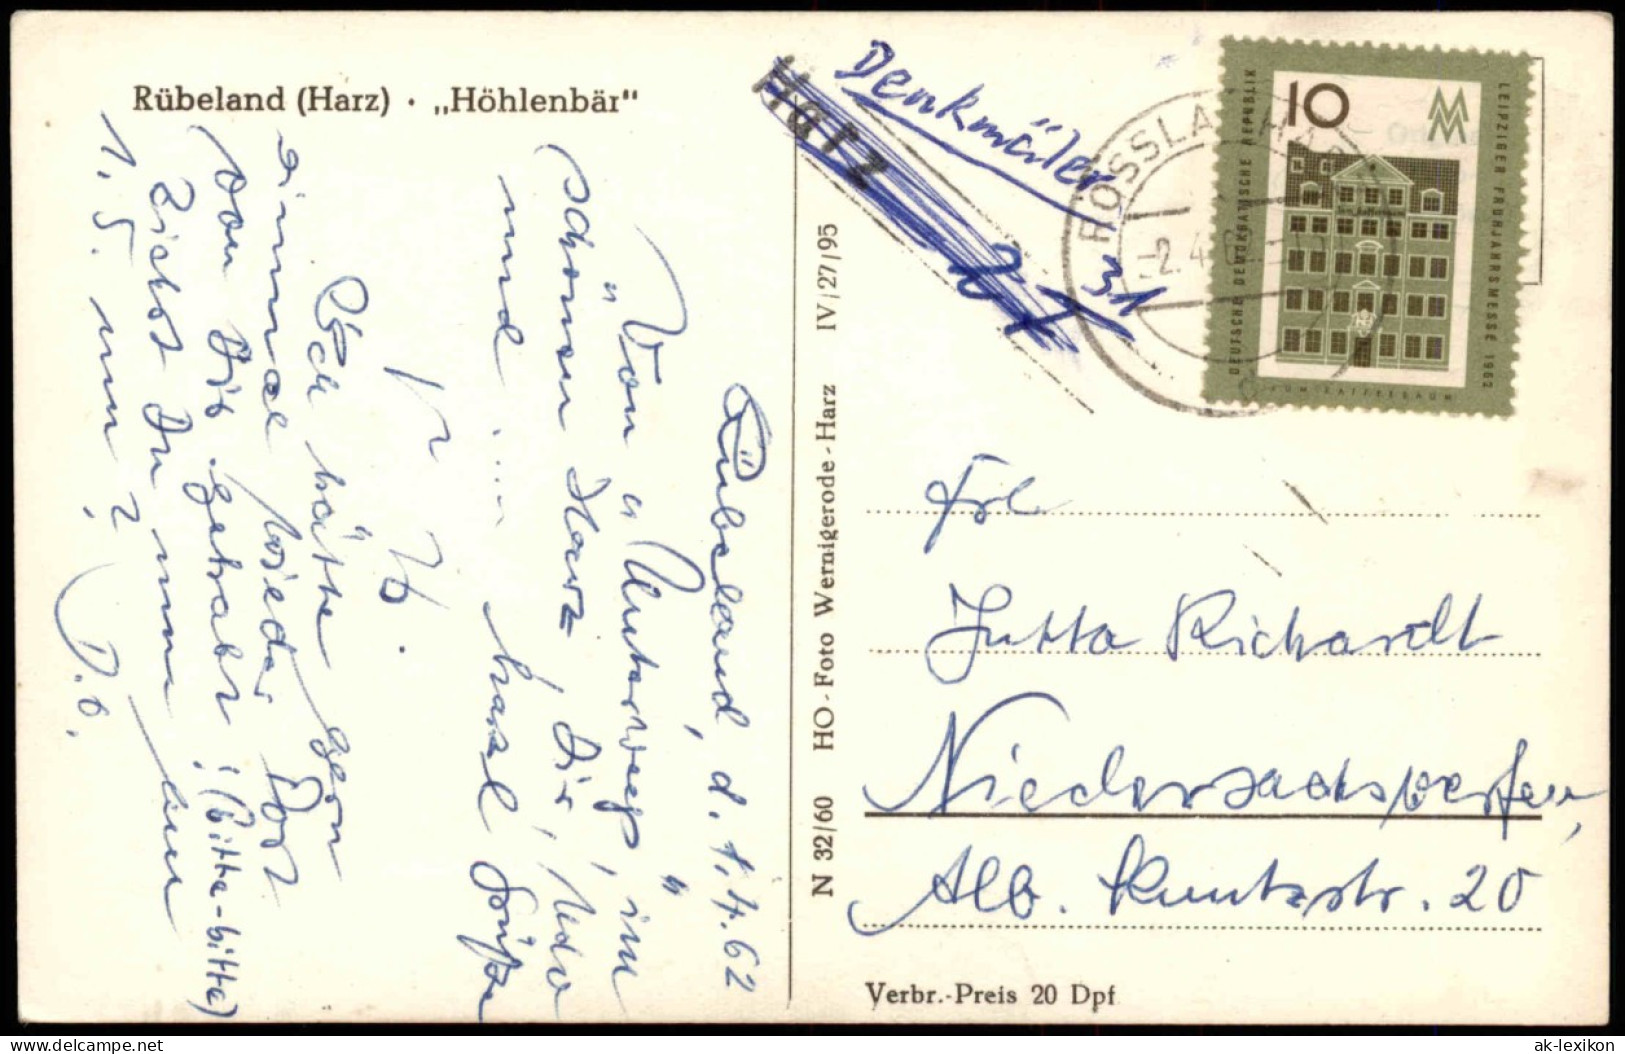 Rübeland (Harz) · „Höhlenbär"
Rübeland, d. 1.4.62
Von "Unterwegs", im
schönen Harz, Dir,
und .... herzl. Grüße
Ich hätte gern
einmal wieder
von Dir gehabt; (bitte-bitte)
Ziehst Du nun um
1. 5. um?
D. O.
N 32/60 HO - Foto Wernigerode - Harz IV/27/95
Harz
Denkmäler
31
ROSSLA (HARZ)
-2.4.62
10
MM
DEUTSCHE DEMOKRATISCHE REPUBLIK
LEIPZIGER FRÜHJAHRSMESSE 1962
ZUM KAFFEEBAUM
Frl
Jutta Richardt
Niedersachswerfen,
Alb. Kuntzstr. 20
Verbr.-Preis 20 Dpf
ak-lexikon
© ak-lexikon.com